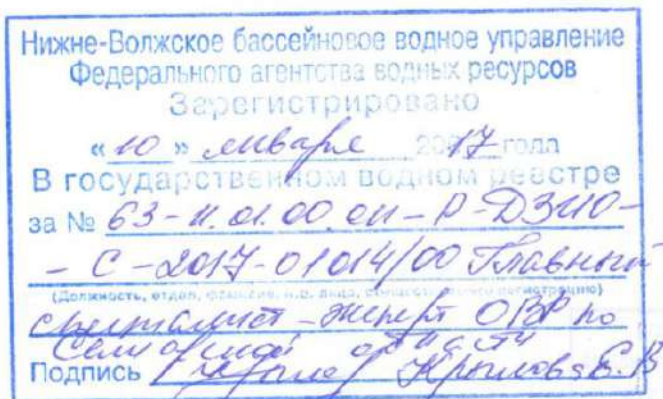 Нижне-Волжское бассейновое водное управление
Федерального агентства водных ресурсов
Зарегистрировано
«10» января 2017 года
В государственном водном реестре
за № 63-11.01.00.011-Р-ДЗИО-
-С-2017-01014/00 Главный
(Должность, отдел, фамилия, и.о. лица, осуществившего регистрацию)
специалист-эксперт ОВР по
Самарской области
Подпись Крылова Е.В